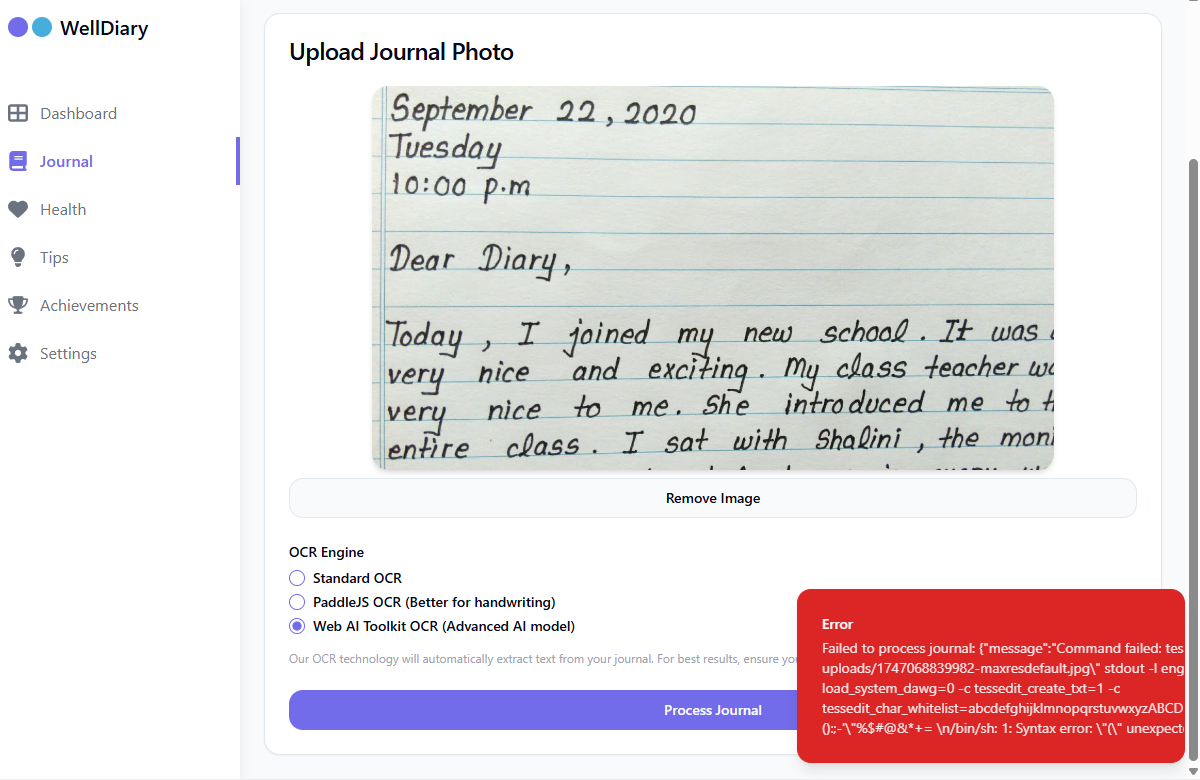 WellDiary
Dashboard
Journal
Health
Tips
Achievements
Settings
Upload Journal Photo
September 22, 2020
Tuesday
10:00 p.m
Dear Diary,
Today, I joined my new school. It was
very nice and exciting. My class teacher
very nice to me. She introduced me to
entire class. I sat with Shalini, the
Remove Image
OCR Engine
Standard OCR
PaddleJS OCR (Better for handwriting)
Web AI Toolkit OCR (Advanced AI model)
Our OCR technology will automatically extract text from your journal. For best results, ensure
Process Journal
Error
Failed to process journal: {"message":"Command failed:
uploads/1747068839982-maxresdefault.jpg\" stdout -l eng
load_system_dawg=0 -c tessedit_create_txt=1 -c
tessedit_char_whitelist=abcdefghijklmnopqrstuvwxyzABCD
():;-'\"%$#@&*+= \n/bin/sh: 1: Syntax error: \"(\"